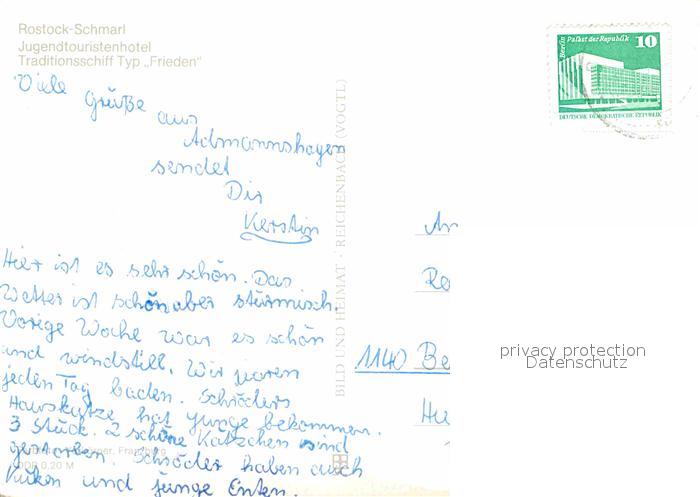 Rostock-Schmarl
Jugendtouristenhotel
Traditionsschiff Typ „Frieden“
Berlin Palast der Republik 10
DEUTSCHE DEMOKRATISCHE REPUBLIK
Viele Grüße
aus
Admannshagen
sendet
Dir
Kerstin
Hier ist es sehr schön. Das
Wetter ist schön aber stürmisch.
Vorige Woche war es schön
und windstill. Wir waren
jeden Tag baden. Schröders
Hauskatze hat junge bekommen.
3 Stück. 2 schöne Kätzchen sind
gestorben. Schröder haben auch
Küken und junge Enten.
BILD UND HEIMAT · REICHENBACH (VOGTL)
1140 Be
privacy protection
Datenschutz
DDR 0,20 M